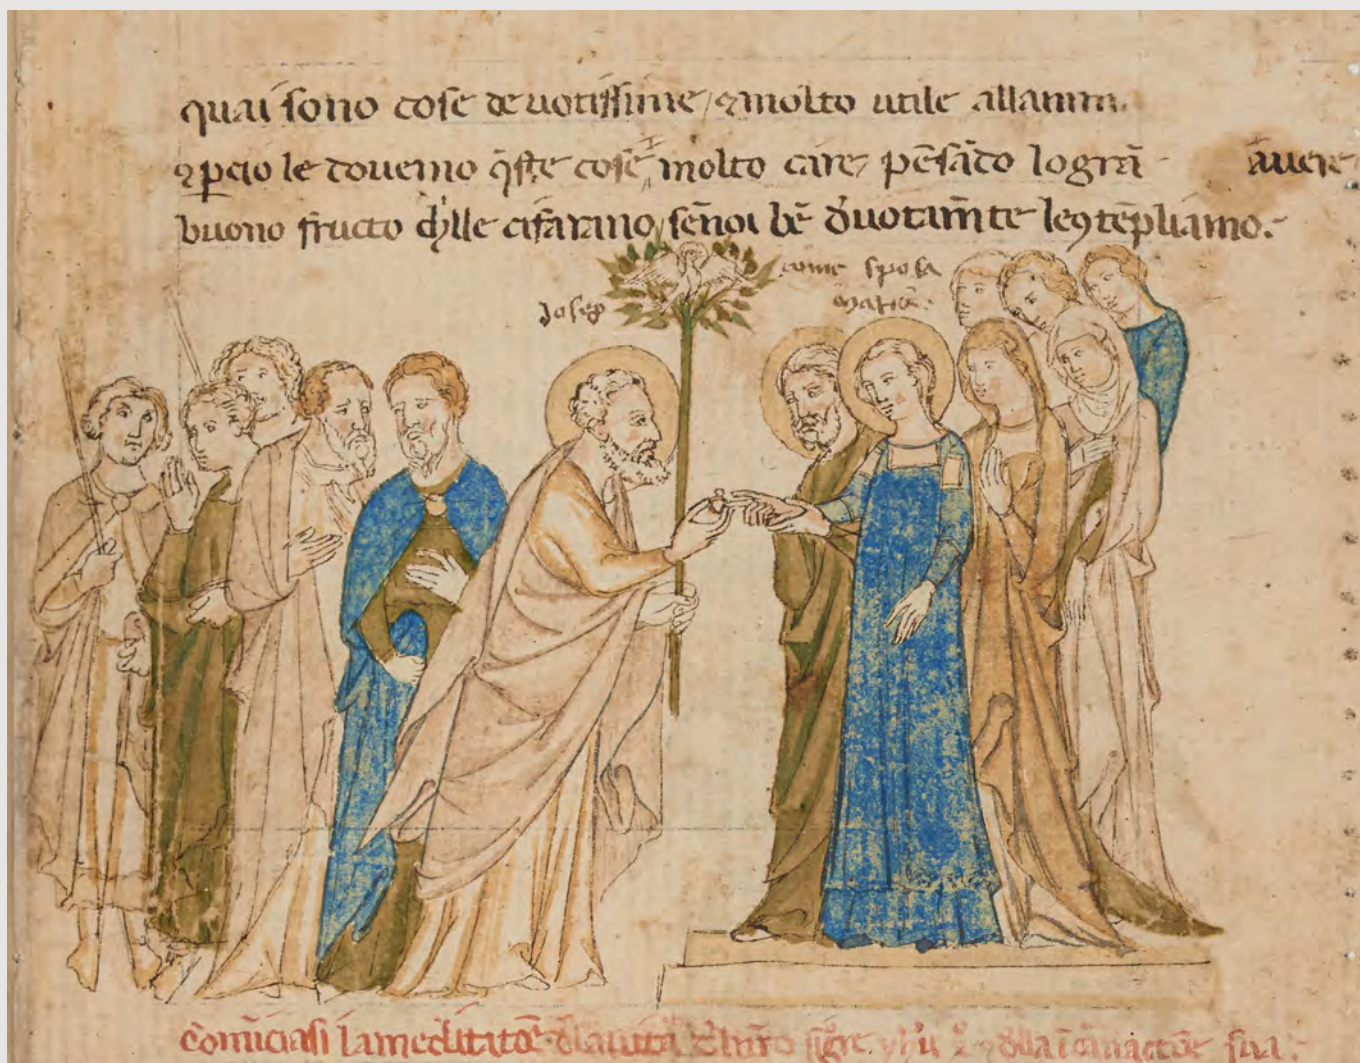 quai sono cose deuotissime / ⁊ molto utile allanima.
⁊ ꝑcio le douemo q̄ste cose molto care, pēsādo lograñ auere
buono fructo dılle cifarāno / senoi bē deuotam̄te le ꝯtēpliamo.
Josep
come sposa
Maria.
Comīciasi la meditatōe della uita del nr̄o sigre yh'u xꝰ ⁊ della ī sua